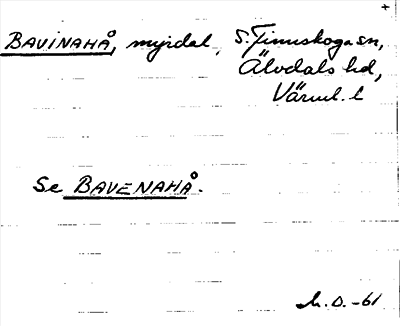 +
BAVINAHÅ, myrdal, S. Finnskoga sn,
Älvdals hd,
Värml. l
Se BAVENAHÅ.
M.O. -61